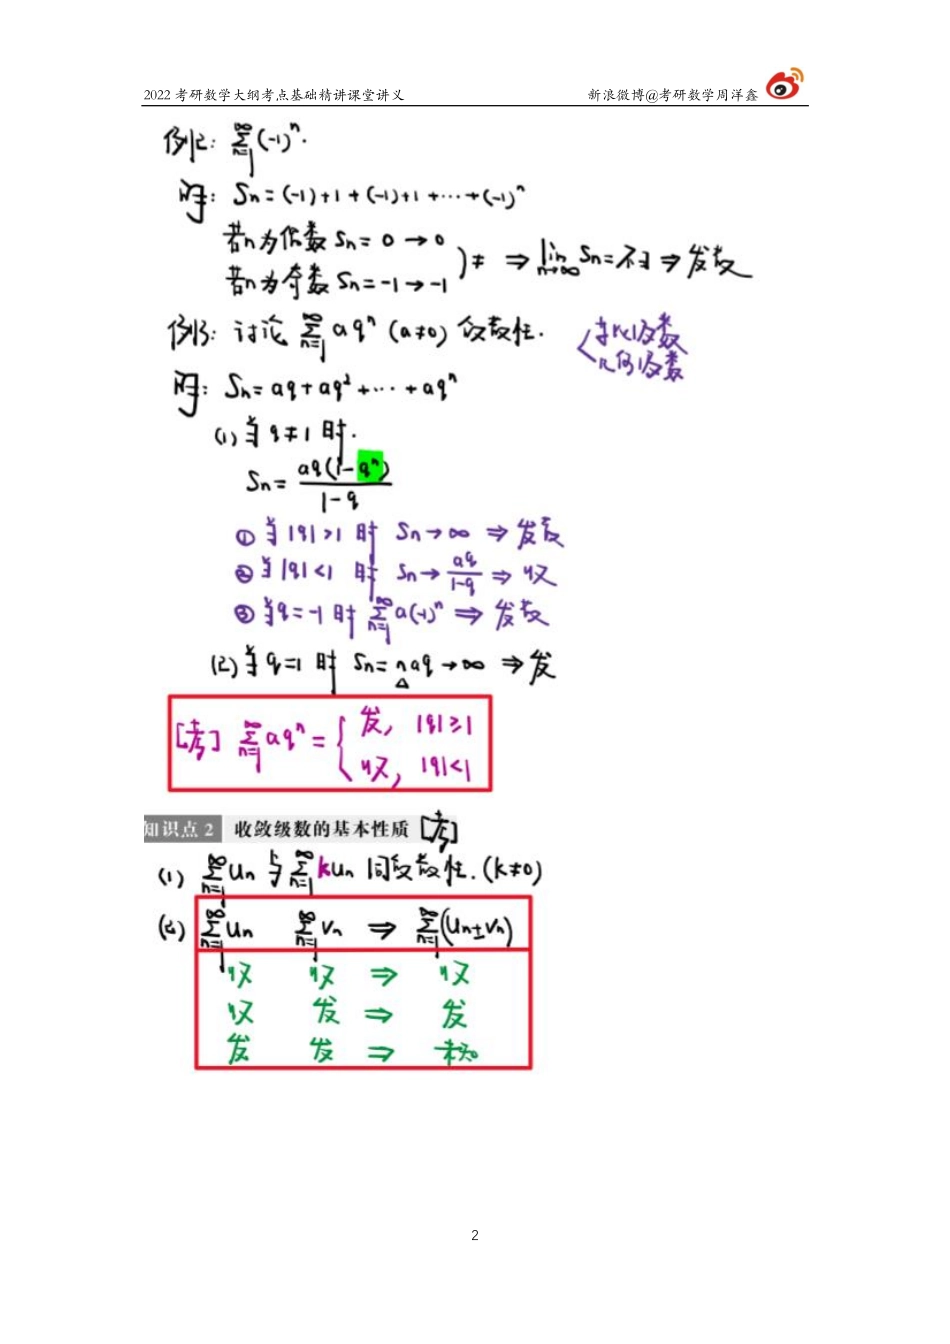 2022 考研数学大纲考点基础精讲课堂讲义 新浪微博@考研数学周洋鑫
例2: ∑_{n=1}^{∞}(-1)^n.
解: Sn=(-1)+1+(-1)+1+···+(-1)^n
若n为偶数 Sn=0→0
若n为奇数 Sn=-1→-1
)≠ ⇒ lim_{n→∞}Sn=不∃ ⇒ 发散
例3: 讨论 ∑_{n=1}^{∞} aq^n (a≠0) 敛散性.
等比级数
几何级数
解: Sn=aq+aq²+···+aq^n
(1) 当 q≠1 时.
Sn= aq(1-q^n)/(1-q)
① 当 |q|>1 时 Sn→∞ ⇒ 发散
② 当 |q|<1 时 Sn→ aq/(1-q) ⇒ 收
③ 当 q=-1 时 ∑_{n=1}^{∞}a(-1)^n ⇒ 发散
(2) 当 q=1 时 Sn=naq→∞ ⇒ 发
[考] ∑_{n=1}^{∞}aq^n = { 发, |q|≥1
收, |q|<1
知识点 2 收敛级数的基本性质 [考]
(1) ∑_{n=1}^{∞}Un 与 ∑_{n=1}^{∞}kUn 同敛散性. (k≠0)
(2) ∑_{n=1}^{∞}Un ∑_{n=1}^{∞}Vn ⇒ ∑_{n=1}^{∞}(Un±Vn)
收 收 ⇒ 收
收 发 ⇒ 发
发 发 ⇒ 未知
2